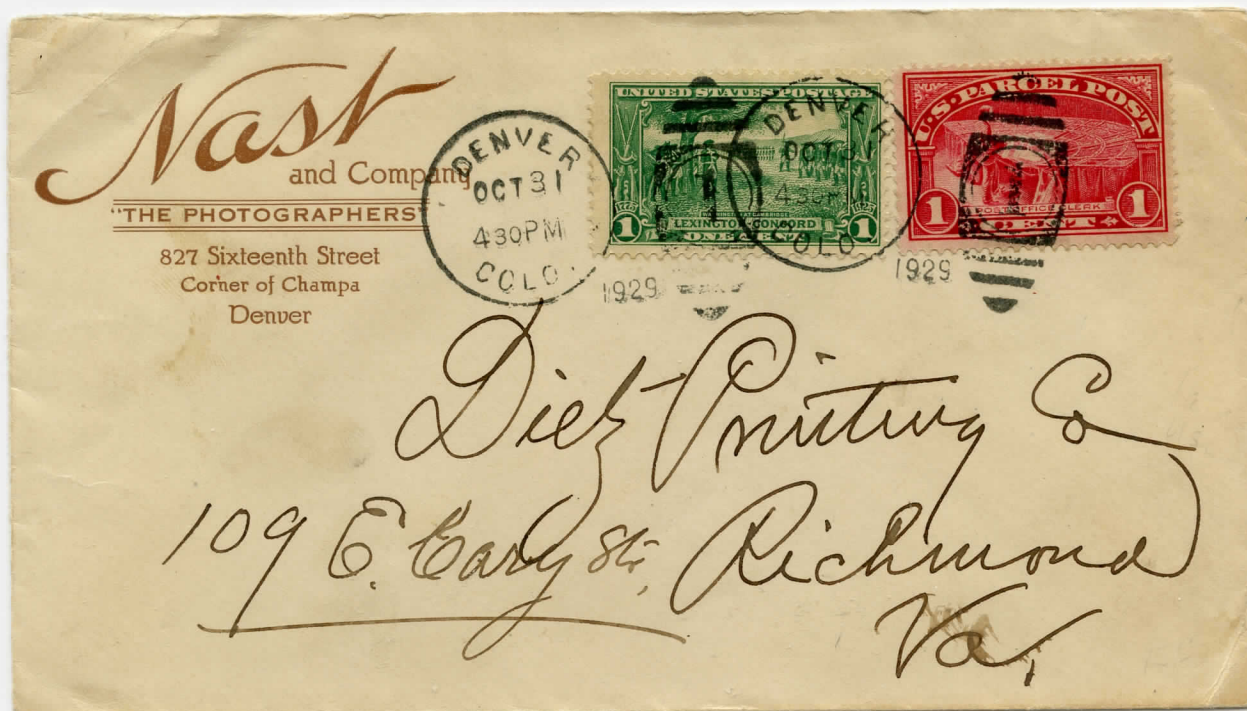 Nast
and Company
"THE PHOTOGRAPHERS"
827 Sixteenth Street
Corner of Champa
Denver
DENVER
OCT 31
430PM
COLO.
1929
UNITED STATES POSTAGE
1775 1925
LEXINGTON-CONCORD
1 ONE CENT 1
DENVER
OCT 31
430PM
COLO.
1929
U.S. PARCEL POST
POST OFFICE CLERK
1 CENT 1
Dietz Printing Co
109 E. Cary St, Richmond
Va,